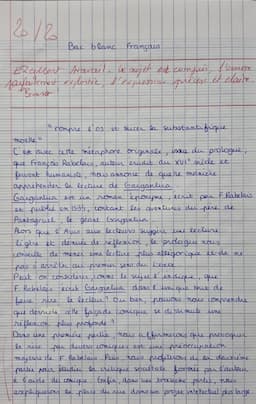 20/20
Bac blanc Français
Excellent travail. Le sujet est compris, l'œuvre
parfaitement exploitée, l'expression précise et claire.
Bravo
"rompre l'os et sucer la substantifique
moelle"
C'est avec cette métaphore originale, issue du prologue,
que François Rabelais, auteur érudit du XVIe siècle et
fervent humaniste, nous annonce de quelle manière
appréhender la lecture de Gargantua.
Gargantua est un roman éponyme, écrit par F. Rabelais
et publié en 1535, contant les aventures du père de
Pantagruel, le géant Gargantua.
Alors que l'Avis aux lecteurs suggère une lecture
légère et dénuée de réflexion, le prologue nous
conseille de mener une lecture plus allégorique et de ne
pas s'arrêter au premier sens du texte.
Peut-on considérer, comme le sujet l'indique, que
F. Rabelais écrit Gargantua dans l'unique but de
faire rire le lecteur? Ou bien, pouvons nous comprendre
que derrière cette façade comique se dissimule une
réflexion plus profonde?
Dans une première partie, nous affirmerons que provoquer
le rire par divers comiques est une préoccupation
majeure de F. Rabelais. Puis, nous profiterons de la deuxième
partie pour étudier la critique sociétale formée par l'auteur
à l'aide du comique. Enfin, dans une troisième partie, nous
expliquerons la place du rire dans un projet intellectuel plus large